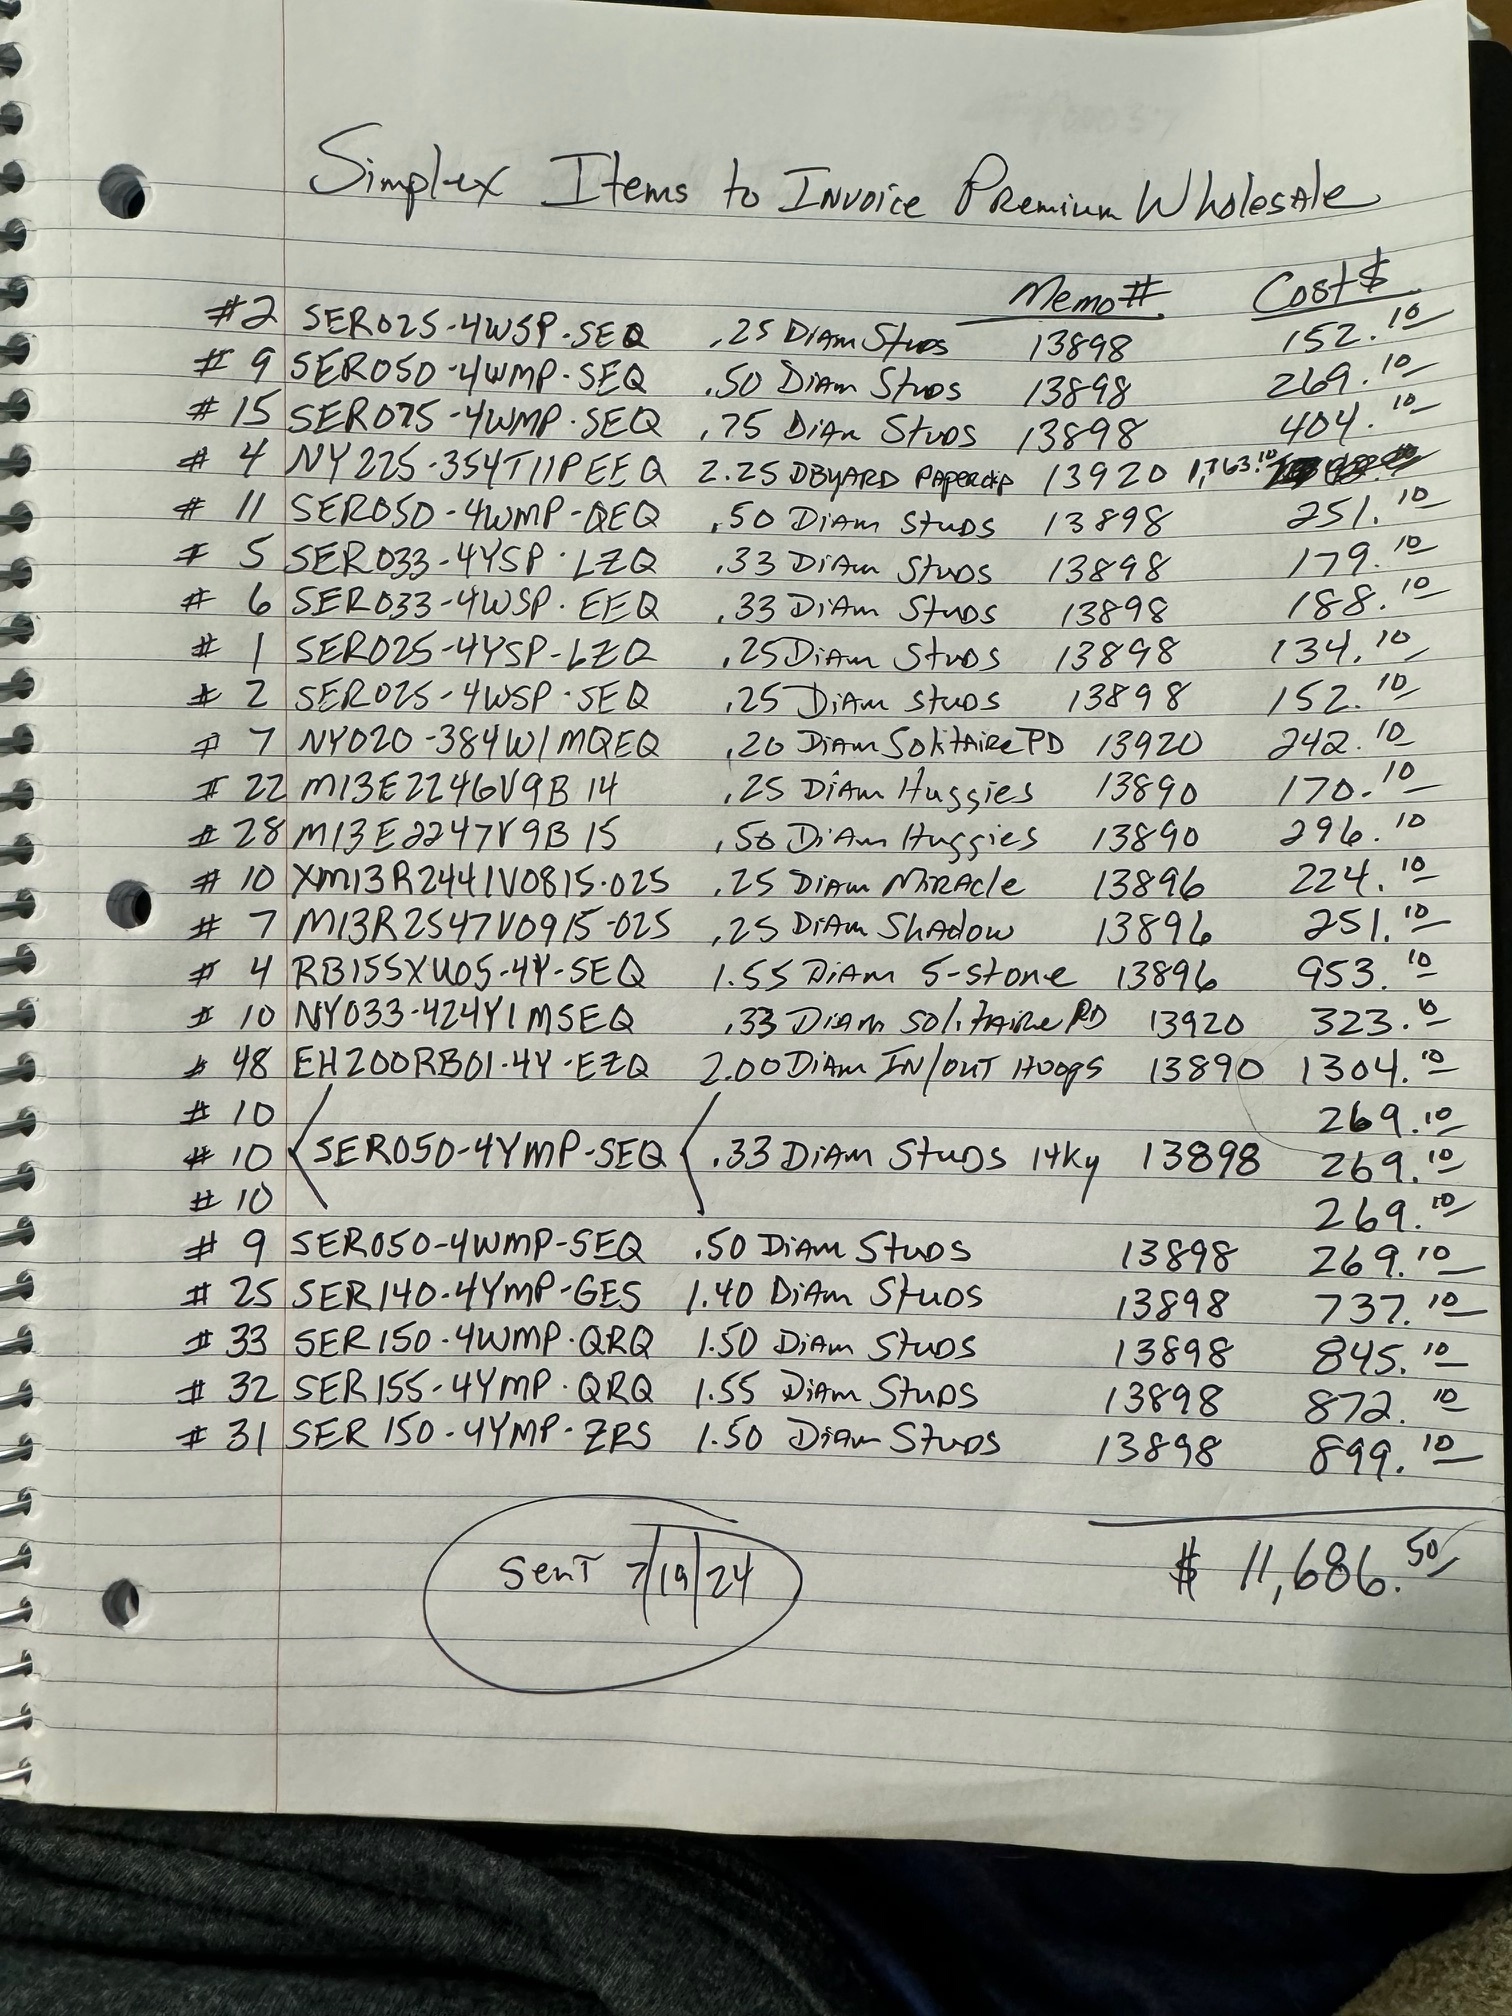 Simplex Items to Invoice Premium Wholesale
Memo# Cost $
#2 SER025-4WSP-SEQ .25 Diam Studs 13898 152.10
#9 SER050-4WMP-SEQ .50 Diam Studs 13898 269.10
#15 SER075-4WMP-SEQ .75 Diam Studs 13898 404.10
#4 NY225-354T11PEEQ 2.25 DBYARD Paperclip 13920 1,763.10
#11 SER050-4WMP-QEQ .50 Diam Studs 13898 251.10
#5 SER033-4YSP-LZQ .33 Diam Studs 13898 179.10
#6 SER033-4WSP-EEQ .33 Diam Studs 13898 188.10
#1 SER025-4YSP-LZQ .25 Diam Studs 13898 134.10
#2 SER025-4WSP-SEQ .25 Diam Studs 13898 152.10
#7 NY020-384W1MQEQ .20 Diam Solitaire PD 13920 242.10
#22 M13E2246V9B14 .25 Diam Huggies 13890 170.10
#28 M13E2247V9B15 .50 Diam Huggies 13890 296.10
#10 XM13R2441V0815-025 .25 Diam Miracle 13896 224.10
#7 M13R2547V0915-025 .25 Diam Shadow 13896 251.10
#4 RB155XU05-4Y-SEQ 1.55 Diam 5-stone 13896 953.10
#10 NY033-424Y1MSEQ .33 Diam Solitaire PD 13920 323.10
#48 EH200RB01-4Y-EZQ 2.00 Diam IN/OUT Hoops 13890 1304.10
#10 269.10
#10 SER050-4YMP-SEQ .33 Diam Studs 14Ky 13898 269.10
#10 269.10
#9 SER050-4WMP-SEQ .50 Diam Studs 13898 269.10
#25 SER140-4YMP-GES 1.40 Diam Studs 13898 737.10
#33 SER150-4WMP-QRQ 1.50 Diam Studs 13898 845.10
#32 SER155-4YMP-QRQ 1.55 Diam Studs 13898 872.10
#31 SER150-4YMP-ZRS 1.50 Diam Studs 13898 899.10
$ 11,686.50
Sent 7/19/24